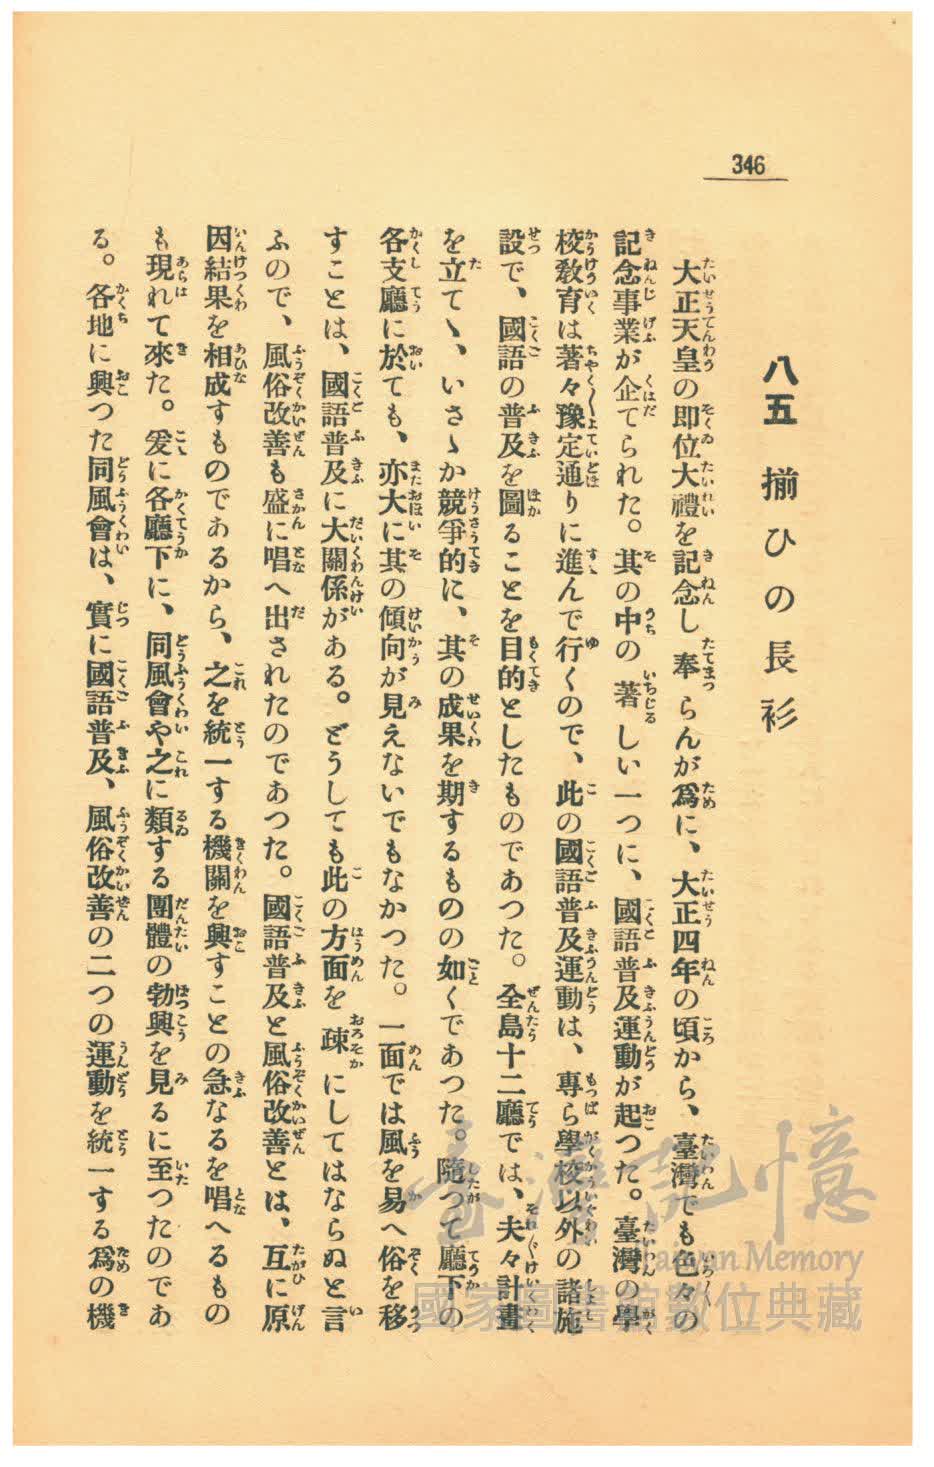 346
八五 揃ひの長衫
大正天皇の即位大禮を記念し奉らんが爲に、大正四年の頃から、臺灣でも色々の
記念事業が企てられた。其の中の著しい一つに、國語普及運動が起つた。臺灣の學
校敎育は著々豫定通りに進んで行くので、此の國語普及運動は、專ら學校以外の諸施
設で、國語の普及を圖ることを目的としたものであつた。全島十二廳では、夫々計畫
を立てゝ、いさゝか競爭的に、其の成果を期するものの如くであつた。隨つて廳下の
各支廳に於ても、亦大に其の傾向が見えないでもなかつた。一面では風を易へ俗を移
すことは、國語普及に大關係がある。どうしても此の方面を疎にしてはならぬと言
ふので、風俗改善も盛に唱へ出されたのであつた。國語普及と風俗改善とは、互に原
因結果を相成すものであるから、之を統一する機關を興すことの急なるを唱へるもの
も現れて來た。爰に各廳下に、同風會や之に類する團體の勃興を見るに至つたのであ
る。各地に興つた同風會は、實に國語普及、風俗改善の二つの運動を統一する爲の機
臺灣記憶
Taiwan Memory
國家圖書館數位典藏